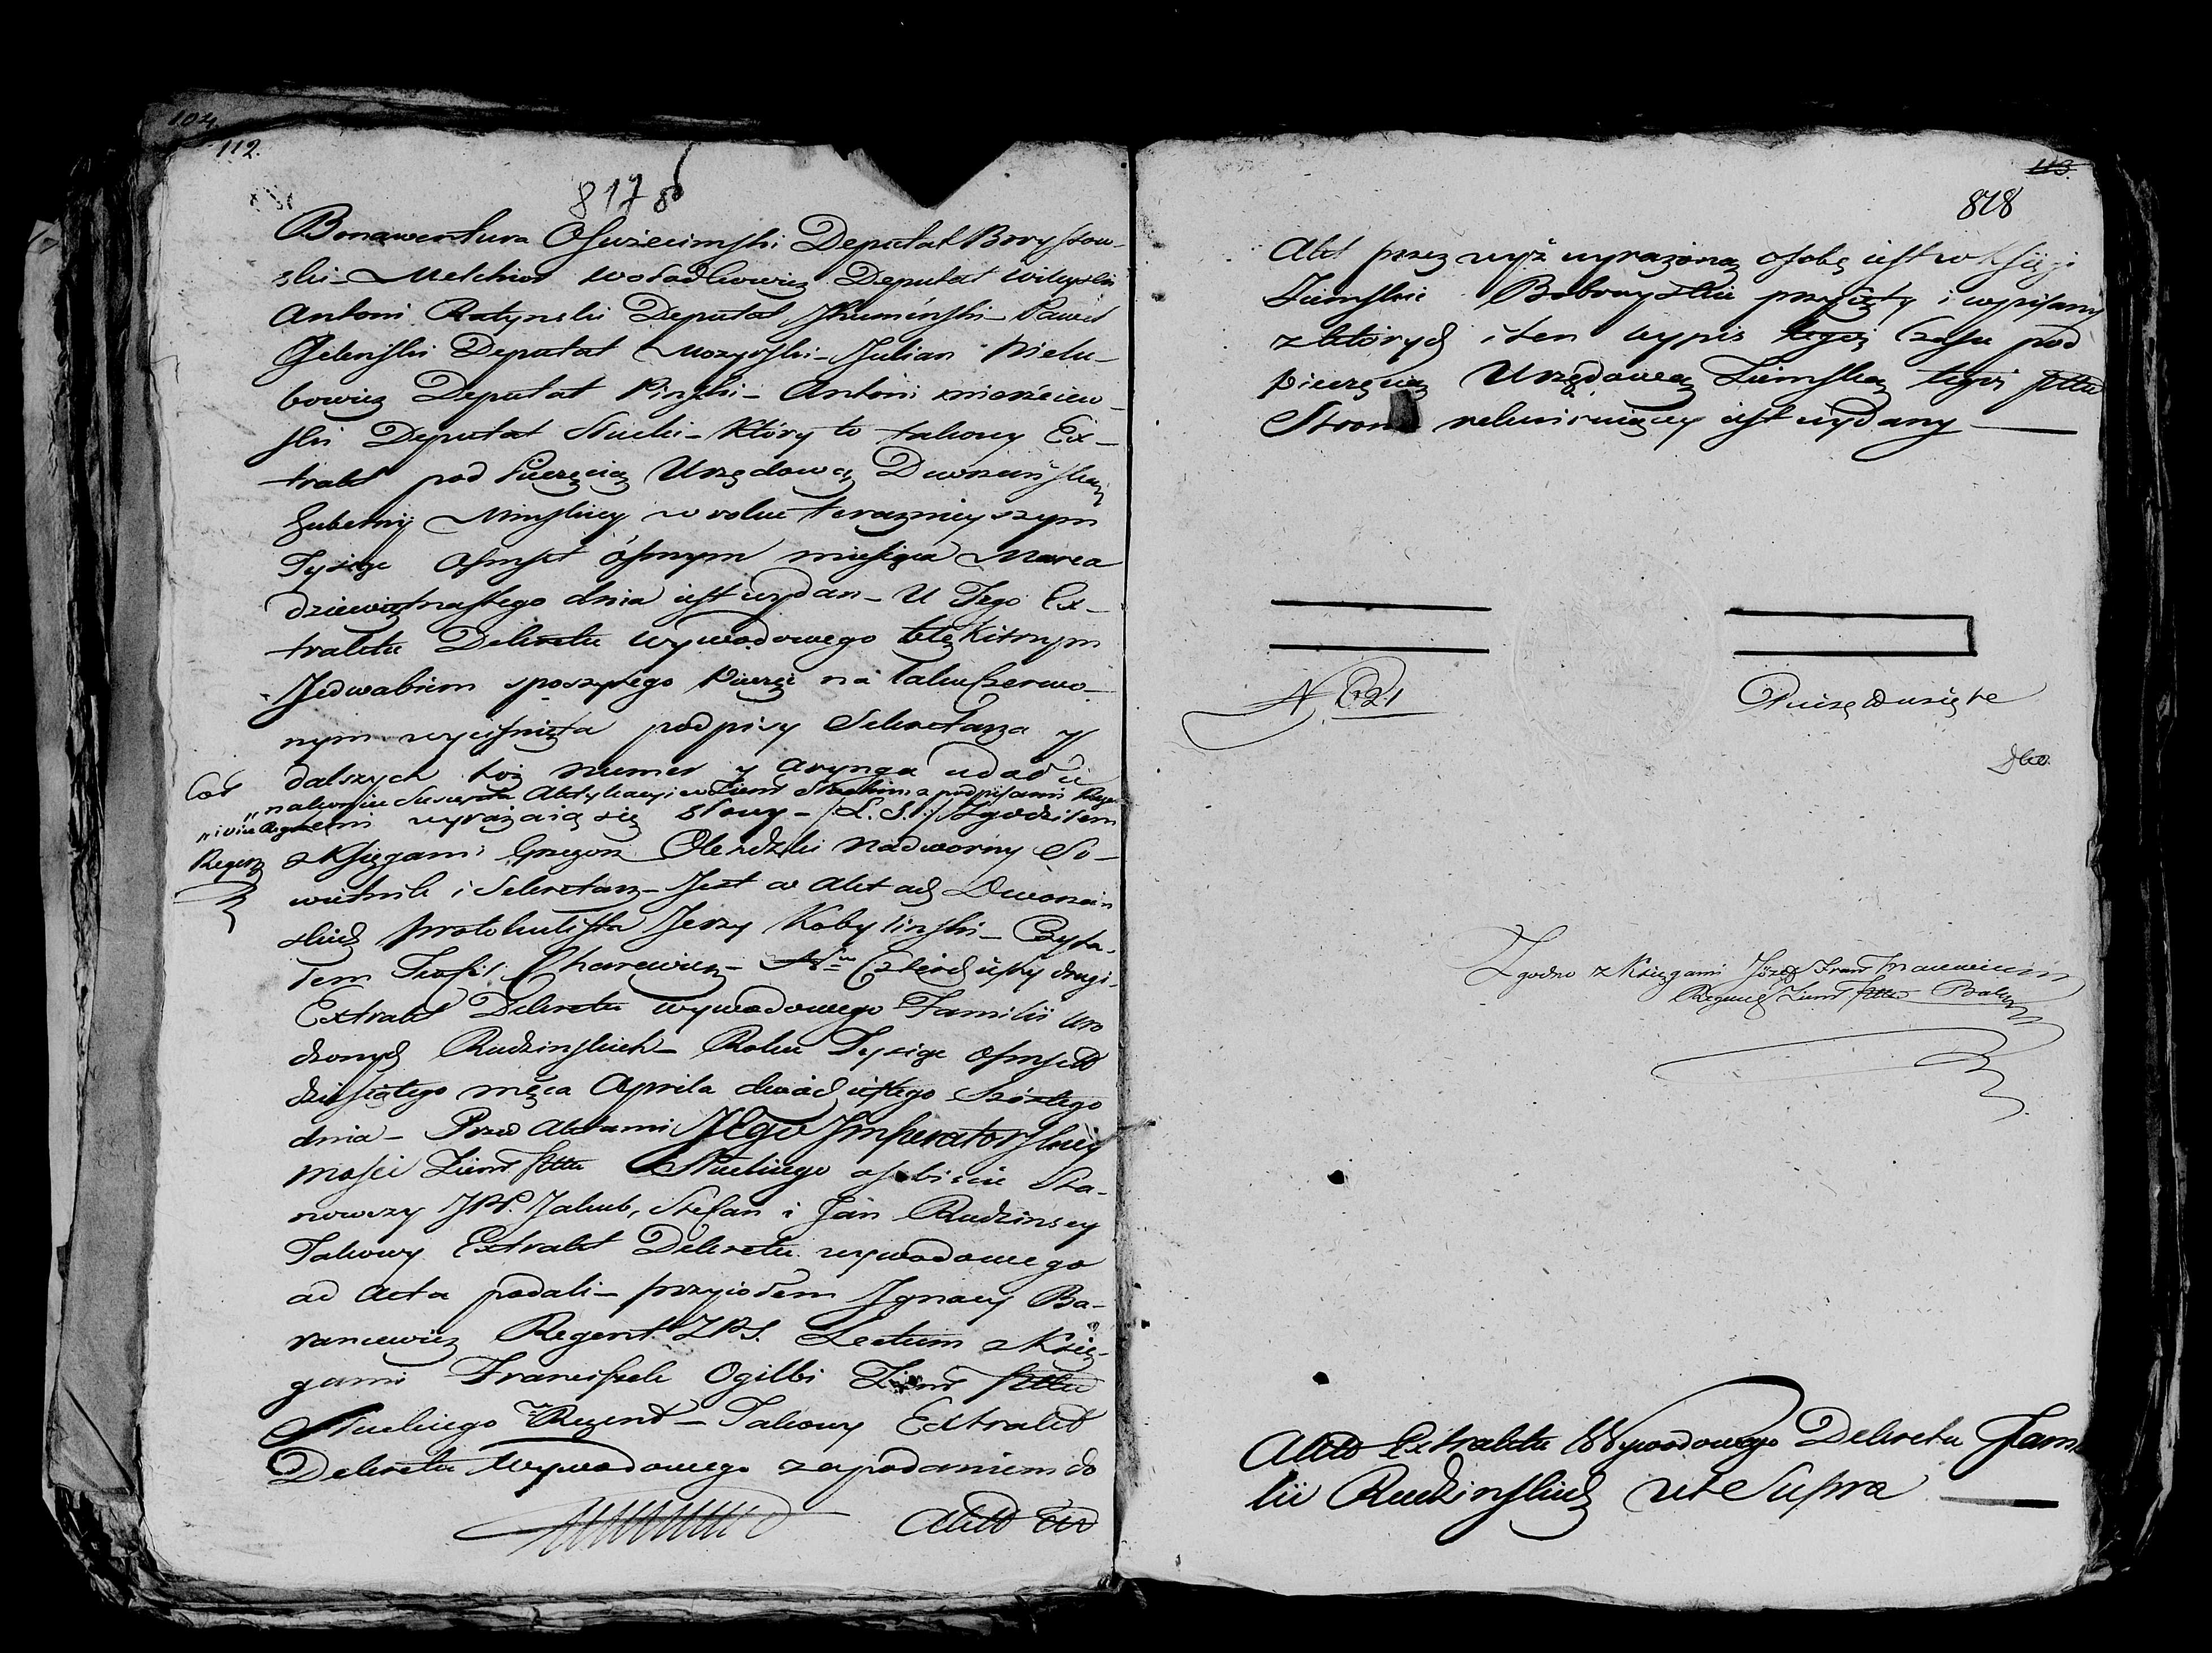 104.
112.
8178
Bonawentura Oswiecimski Deputat Borysow-
ski – Melchior Woładkowicz Deputat Wileyski
Antoni Ratynski Deputat Jhuminski – Paweł
Jelenski Deputat Mozyrski – Julian Nielu-
bowicz Deputat Pinski – Antoni
ski Deputat Słucki – Który to takowy Ex-
trakt pod Pieczęcią Urzędową Dworzańską
Gubernij Minskiey w roku teraznieyszym
Tysiąc Osmset ósmym miesiąca Marca
dziewiętnastego dnia iest wydan – U Tego Ex-
traktu Dekretu wywodowego błękitnym
Jedwabiem sposzytego Pieczęć na laku czerwo-
nym wyciśnięta podpisy Sekretarza y
dalszych toż numer y arynga
Cor
nakoniec Suscepta Aktykacyi w Ziem Słuckim z podpisami Rege
" i vice Regentemi wyrażaią się słowy – /:L. S.:/ Zgodziłem
Regent z Księgami Grzegorz Olendzki Nadworny So-
wietnik i Sekretarz – Jest w Aktach Dworzań
skich protokulista Jerzy Kobylinski – Czyta-
łem Teofil Charewicz – Nr Czterdziesty drugi
Extrakt Dekretu wywodowego Familii Uro
dzonych Rudzinskich – Roku Tysiąc Osmset
dziesiątego męca Aprila dwudziestego szóstego
dnia – Przed Aktami JEgo Imperatorskiey
Mości Ziem Pttu Słuckiego osobiście Sta-
nowszy JPP. Jakub, Stefan i Jan Rudzinscy
Takowy Extrakt Dekretu wywodowego
ad Acta podali – przyiołem Jgnacy Ba-
rancewicz Regent Z.P.S. Lectum z Księ-
gami Franciszek Ogilbi Ziem Pttu
Słuckiego Regent – Takowy Extrakt
Dekretu Wywodowego za podaniem do
Akt
113.
818
Akt przez wyż wyrażoną osobę iest w Księgi
Ziemskie Bobruyskie przyięty i wypisany
z których i ten wypis tegoż Czasu pod
Pieczęcią Urzędową Ziemską tegoż Pttu
Stronie rekwiruiącey iest wydany
N. 621
Pieczę
Zgodno z Księgami Józef
Regent Ziem Pttu
Akt Extraktu Wywodowego Dekretu Fami
lii Rudzinskich ut Supra